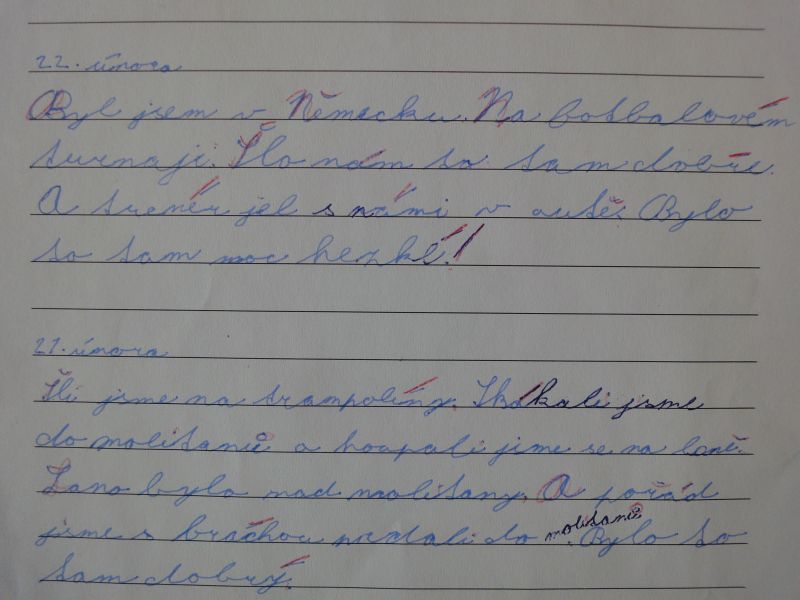 22. února
Byl jsem v Německu. Na fotbalovém
turnaji. Šlo nám to tam dobře.
A trenér jel s námi v autě. Bylo
to tam moc hezké!
21. února
Šli jsme na trampolíny. Skákali jsme
do molitanů a houpali jsme se na laně.
Lano bylo nad molitany. A pořád
jsme s bráchou padali do molitanů. Bylo to
tam dobrý.